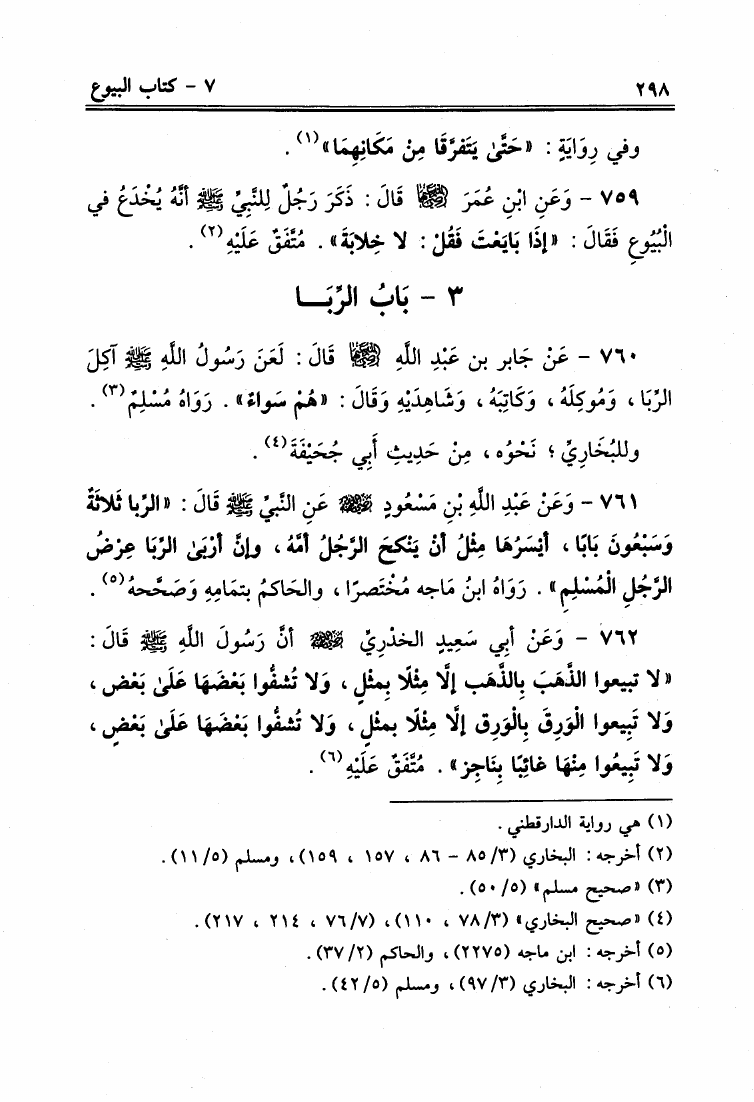 ٢٩٨ ٧ - كتاب البيوع
وفي رِوَايَةٍ : «حَتَّىٰ يَتَفرَّقَا مِنْ مَكَانِهِمَا»(١) .
٧٥٩ - وَعَنِ ابْنِ عُمَرَ رضي الله عنهما قَالَ : ذَكَرَ رَجُلٌ لِلنَّبِيِّ ﷺ أنَّهُ يُخْدَعُ في
الْبُيُوعِ فَقَالَ : «إذَا بَايَعْتَ فَقُلْ : لا خِلابَةَ» . مُتَّفَقٌ عَلَيْهِ(٢) .
٣ - بَابُ الرِّبَـا
٧٦٠ - عَنْ جَابر بن عَبْدِ اللَّهِ رضي الله عنهما قَالَ : لَعَنَ رَسُولُ اللَّهِ ﷺ آكِلَ
الرِّبَا ، وَمُوكِلَهُ ، وَكَاتِبَهُ ، وَشَاهِدَيْهِ وَقَالَ : «هُمْ سَواءٌ» . رَوَاهُ مُسْلِمٌ(٣) .
وللبُخَاريِّ ؛ نَحْوُه ، مِنْ حَدِيثِ أَبي جُحَيْفَةَ(٤) .
٧٦١ - وَعَنْ عَبْدِ اللَّهِ بْنِ مَسْعُودٍ رضي الله عنه عَنِ النَّبيِّ ﷺ قَالَ : «الرِّبا ثَلاثَةٌ
وَسَبْعُونَ بَابًا ، أيْسَرُهَا مِثْلُ أنْ يَنْكِحَ الرَّجُلُ أمَّهُ ، وإنَّ أرْبَىٰ الرِّبَا عِرْضُ
الرَّجُلِ الْمُسْلِمِ» . رَوَاهُ ابنُ مَاجه مُخْتَصرًا ، والحَاكمُ بتمَامِهِ وَصَحَّحهُ(٥) .
٧٦٢ - وَعَنْ أبي سَعِيدٍ الخدْرِيِّ رضي الله عنه أنَّ رَسُولَ اللَّهِ ﷺ قَالَ :
«لا تبيعوا الذَّهَبَ بِالذَّهَبِ إلَّا مِثْلًا بِمثْلٍ ، وَلا تُشفُّوا بَعْضَهَا عَلَىٰ بَعْضٍ ،
وَلا تَبِيعوا الْوَرِقَ بِالْوَرِقِ إلَّا مِثْلًا بمثْلٍ ، وَلا تُشفُّوا بَعْضَهَا عَلَىٰ بَعْضٍ ،
وَلا تَبِيعُوا مِنْهَا غائِبًا بِنَاجِزٍ» . مُتَّفَقٌ عَلَيْهِ(٦) .
(١) هي رواية الدارقطني .
(٢) أخرجه : البخاري (٣/ ٨٥ - ٨٦ ، ١٥٧ ، ١٥٩)، ومسلم (٥/ ١١).
(٣) «صحيح مسلم» (٥/ ٥٠).
(٤) «صحيح البخاري» (٣/ ٧٨ ، ١١٠)، (٧/ ٧٦ ، ٢١٤ ، ٢١٧).
(٥) أخرجه : ابن ماجه (٢٢٧٥)، والحاكم (٢/ ٣٧).
(٦) أخرجه : البخاري (٣/ ٩٧)، ومسلم (٥/ ٤٢).